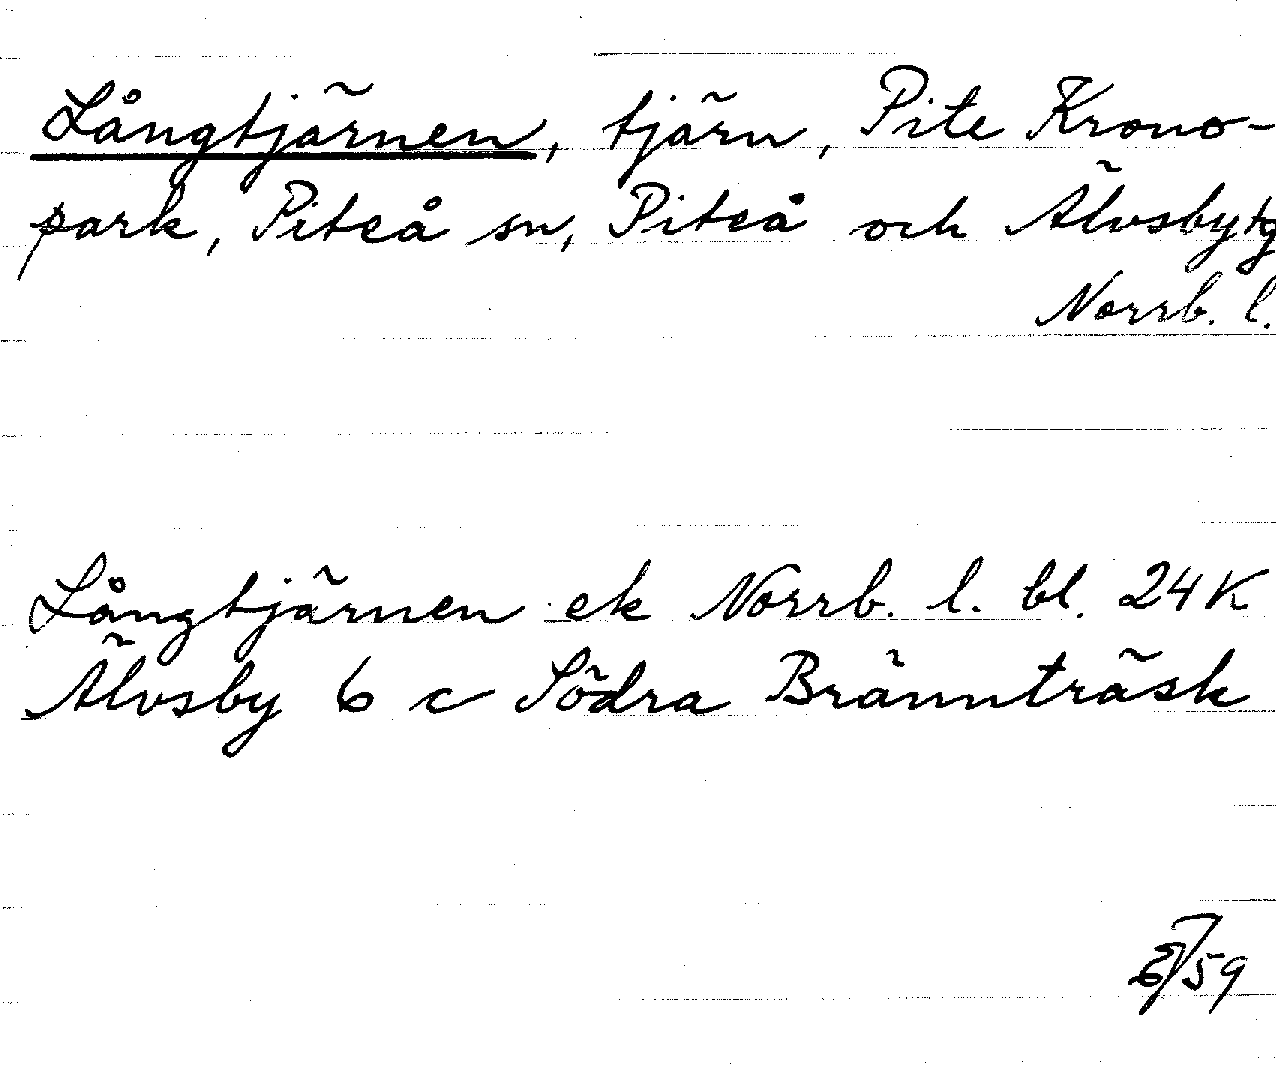 Långtjärnen, tjärn, Pite Krono-
park, Piteå sn, Piteå och Älvsby tg
Norrb. l.
Långtjärnen ek Norrb. l. bl. 24 K
Älvsby 6 c Södra Brännträsk
/59